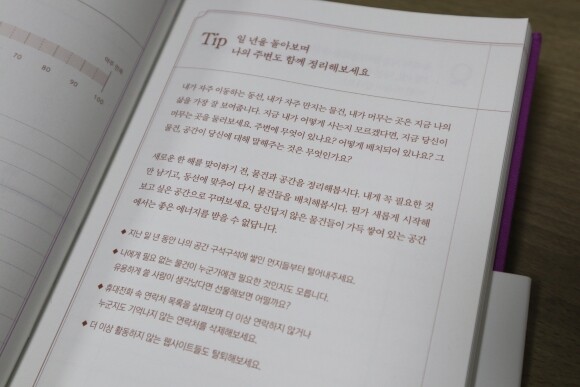 70
80
90
100
Tip 일 년을 돌아보며
나의 주변도 함께 정리해보세요
내가 자주 이동하는 동선, 내가 자주 만지는 물건, 내가 머무는 곳은 지금 나의
삶을 가장 잘 보여줍니다. 지금 내가 어떻게 사는지 모르겠다면, 지금 당신이
머무는 곳을 둘러보세요. 주변에 무엇이 있나요? 어떻게 배치되어 있나요? 그
물건, 공간이 당신에 대해 말해주는 것은 무엇인가요?
새로운 한 해를 맞이하기 전, 물건과 공간을 정리해봅시다. 내게 꼭 필요한 것
만 남기고, 동선에 맞추어 다시 물건들을 배치해봅시다. 뭔가 새롭게 시작해
보고 싶은 공간으로 꾸며보세요. 당신답지 않은 물건들이 가득 쌓여 있는 공간
에서는 좋은 에너지를 받을 수 없답니다.
◆ 지난 일 년 동안 나의 공간 구석구석에 쌓인 먼지들부터 털어내주세요.
◆ 나에게 필요 없는 물건이 누군가에겐 필요한 것인지도 모릅니다.
유용하게 쓸 사람이 생각났다면 선물해보면 어떨까요?
◆ 휴대전화 속 연락처 목록을 살펴보며 더 이상 연락하지 않거나
누군지도 기억나지 않는 연락처를 삭제해보세요.
◆ 더 이상 활동하지 않는 웹사이트들도 탈퇴해보세요.